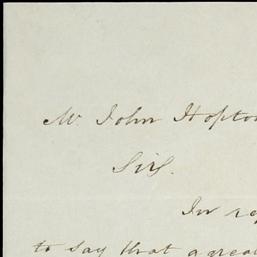 Mr. John Hopto
Sir.
In re
to say that a grea